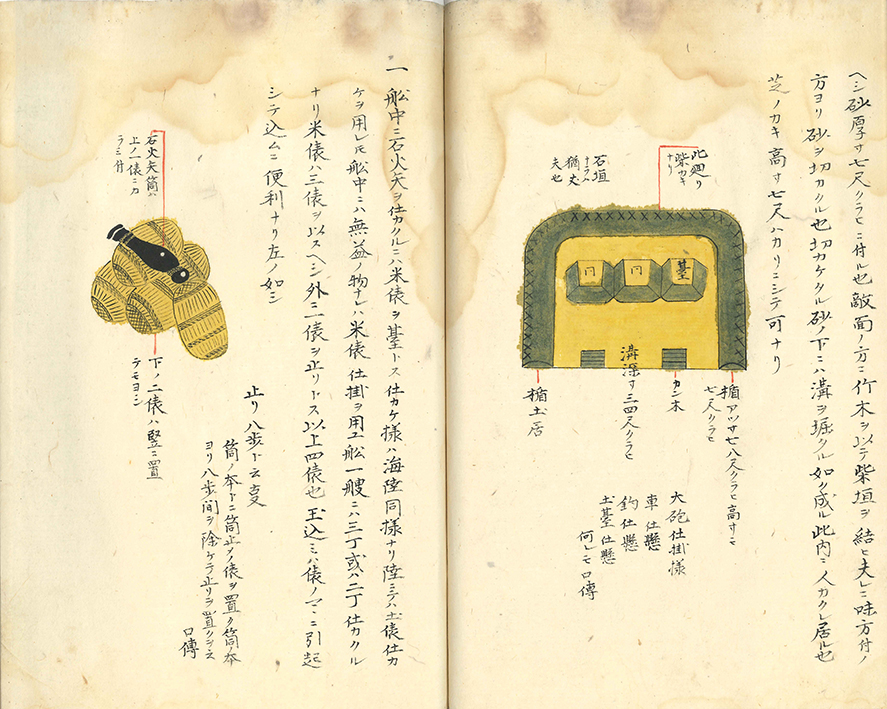 ヘシ砂厚サ七尺クラヒニ付ル也敵面ノ方ニ竹木ヲ以テ柴垣ヲ結ヒ夫レニ味方付ノ
方ヨリ砂ヲ切カクル也切カケタル砂ノ下ニハ溝ヲ堀クル如ク成ル此内ニ人カクレ居ル也
芝ノカキ高サ七尺ハカリニシテ可ナリ
此廻リ
柴カキ
ナリ
石垣
ナラハ
猶丈
夫也
臺
円
円
楯アツサ七八尺クラヒ高サモ
七尺クラヒ
カン木
溝深サ三四尺クラヒ
楯土居
大砲仕掛様
車仕懸
釣仕懸
土臺仕懸
何レモ口傳
一 舩中ニ石火矢ヲ仕カクルニハ米俵ヲ臺トス仕カケ様ハ海陸同様ナリ陸ニテハ土俵仕カ
ケヲ用レ𪜈舩中ニハ無益ノ物ナレハ米俵仕掛ヲ用ユ舩一艘ニハ三丁或ハ二丁仕カクル
ナリ米俵ハ三俵ヲ以スヘシ外ニ一俵ヲ止リトス以上四俵也玉込ミハ俵ノマヽニ引起
シテ込ムニ便利ナリ左ノ如シ
石火矢筒ハ
上ノ一俵ニカ
ラミ付
下ノ二俵ハ竪ニ置
テモヨシ
止リ八歩ト云支
筒ノ本ト二筒止メノ俵ヲ置ク筒ノ本
ヨリ八歩間ヲ除ケテ止リヲ置クヲ云
口傳